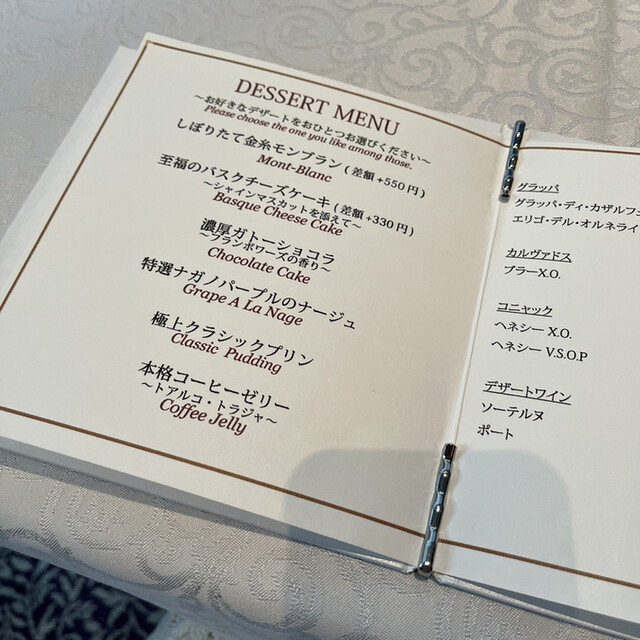 DESSERT MENU
～お好きなデザートをおひとつお選びください～
Please choose the one you like among those.
しぼりたて金糸モンブラン（差額+550円）
Mont-Blanc
至福のバスクチーズケーキ（差額+330円）
～シャインマスカットを添えて～
Basque Cheese Cake
濃厚ガトーショコラ
～フランボワーズの香り～
Chocolate Cake
特選ナガノパープルのナージュ
Grape A La Nage
極上クラシックプリン
Classic Pudding
本格コーヒーゼリー
～トアルコ・トラジャ～
Coffee Jelly
グラッパ
グラッパ・ディ・カザルフ
エリゴ・デル・オルネライ
カルヴァドス
ブラーX.O.
コニャック
ヘネシー X.O.
ヘネシー V.S.O.P
デザートワイン
ソーテルヌ
ポート